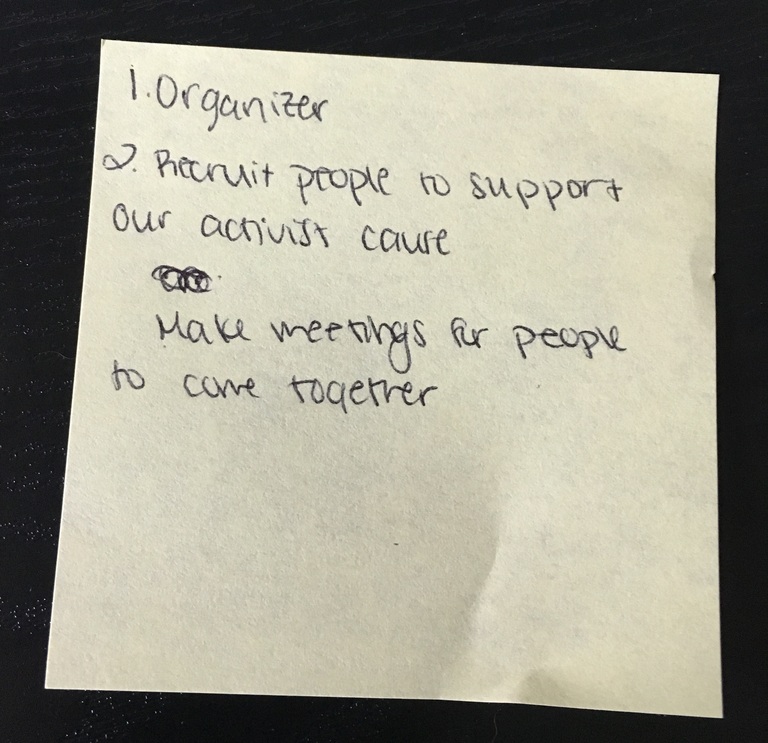 1. Organizer
2. Recruit people to support
our activist cause
Make meetings for people
to come together